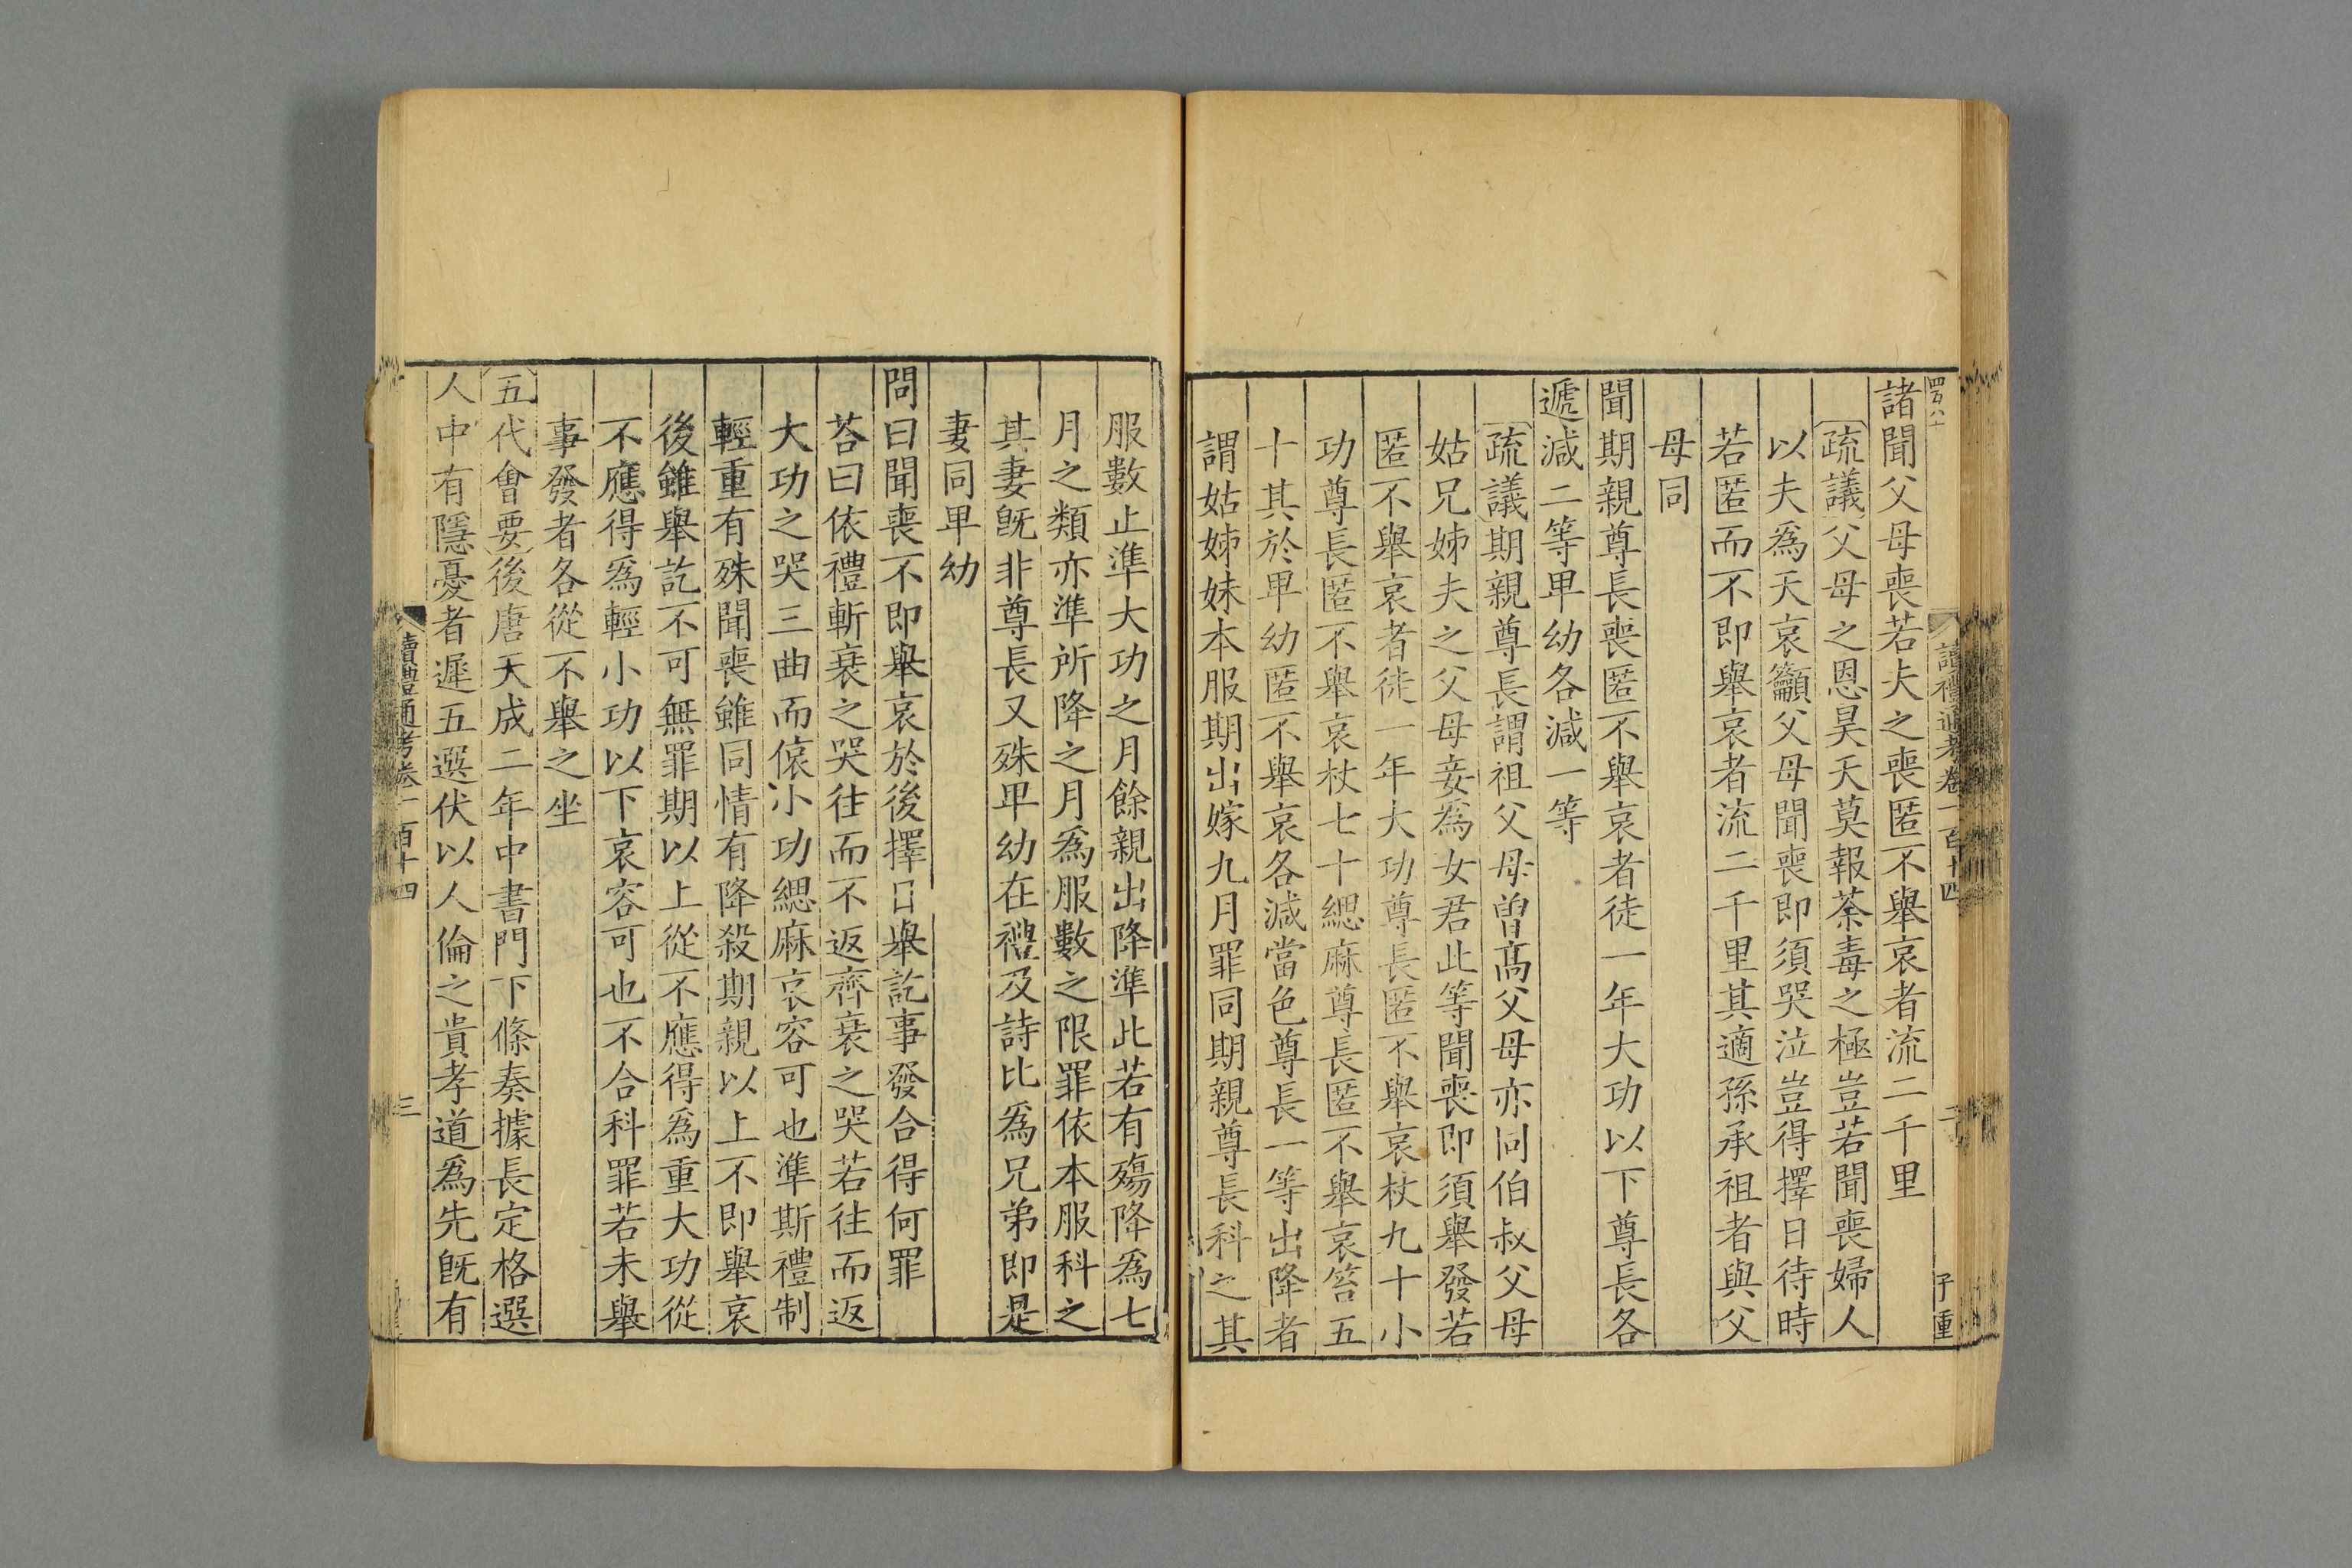 諸聞父母喪若夫之喪匿不舉哀者流二千里
疏議父母之恩昊天莫報荼毒之極豈若聞喪婦人
以夫爲天哀籲父母聞喪即須哭泣豈得擇日待時
若匿而不即舉哀者流二千里其適孫承祖者與父
母同
聞期親尊長喪匿不舉哀者徒一年大功以下尊長各
遞減二等卑幼各減一等
疏議期親尊長謂祖父母曾髙父母亦同伯叔父母
姑兄姊夫之父母妾爲女君此等聞喪即須舉發若
匿不舉哀者徒一年大功尊長匿不舉哀杖九十小
功尊長匿不舉哀杖七十緦麻尊長匿不舉哀笞五
十其於卑幼匿不舉哀各減當色尊長一等出降者
謂姑姊妹本服期出嫁九月罪同期親尊長科之其
服數止準大功之月餘親出降準此若有殤降爲七
月之類亦準所降之月爲服數之限罪依本服科之
其妻旣非尊長又殊卑幼在禮及詩比爲兄弟即是
妻同卑幼
問曰聞喪不即舉哀於後擇日舉訖事發合得何罪
荅曰依禮斬衰之哭往而不返齊衰之哭若往而返
大功之哭三曲而偯小功緦麻哀容可也準斯禮制
輕重有殊聞喪雖同情有降殺期親以上不即舉哀
後雖舉訖不可無罪期以上從不應得爲重大功從
不應得爲輕小功以下哀容可也不合科罪若未舉
事發者各從不舉之坐
五代會要後唐天成二年中書門下條奏據長定格選
人中有隱憂者遲五選伏以人倫之貴孝道爲先旣有
讀禮通考卷一百十四
三
讀禮通考卷一百十四
二
子重